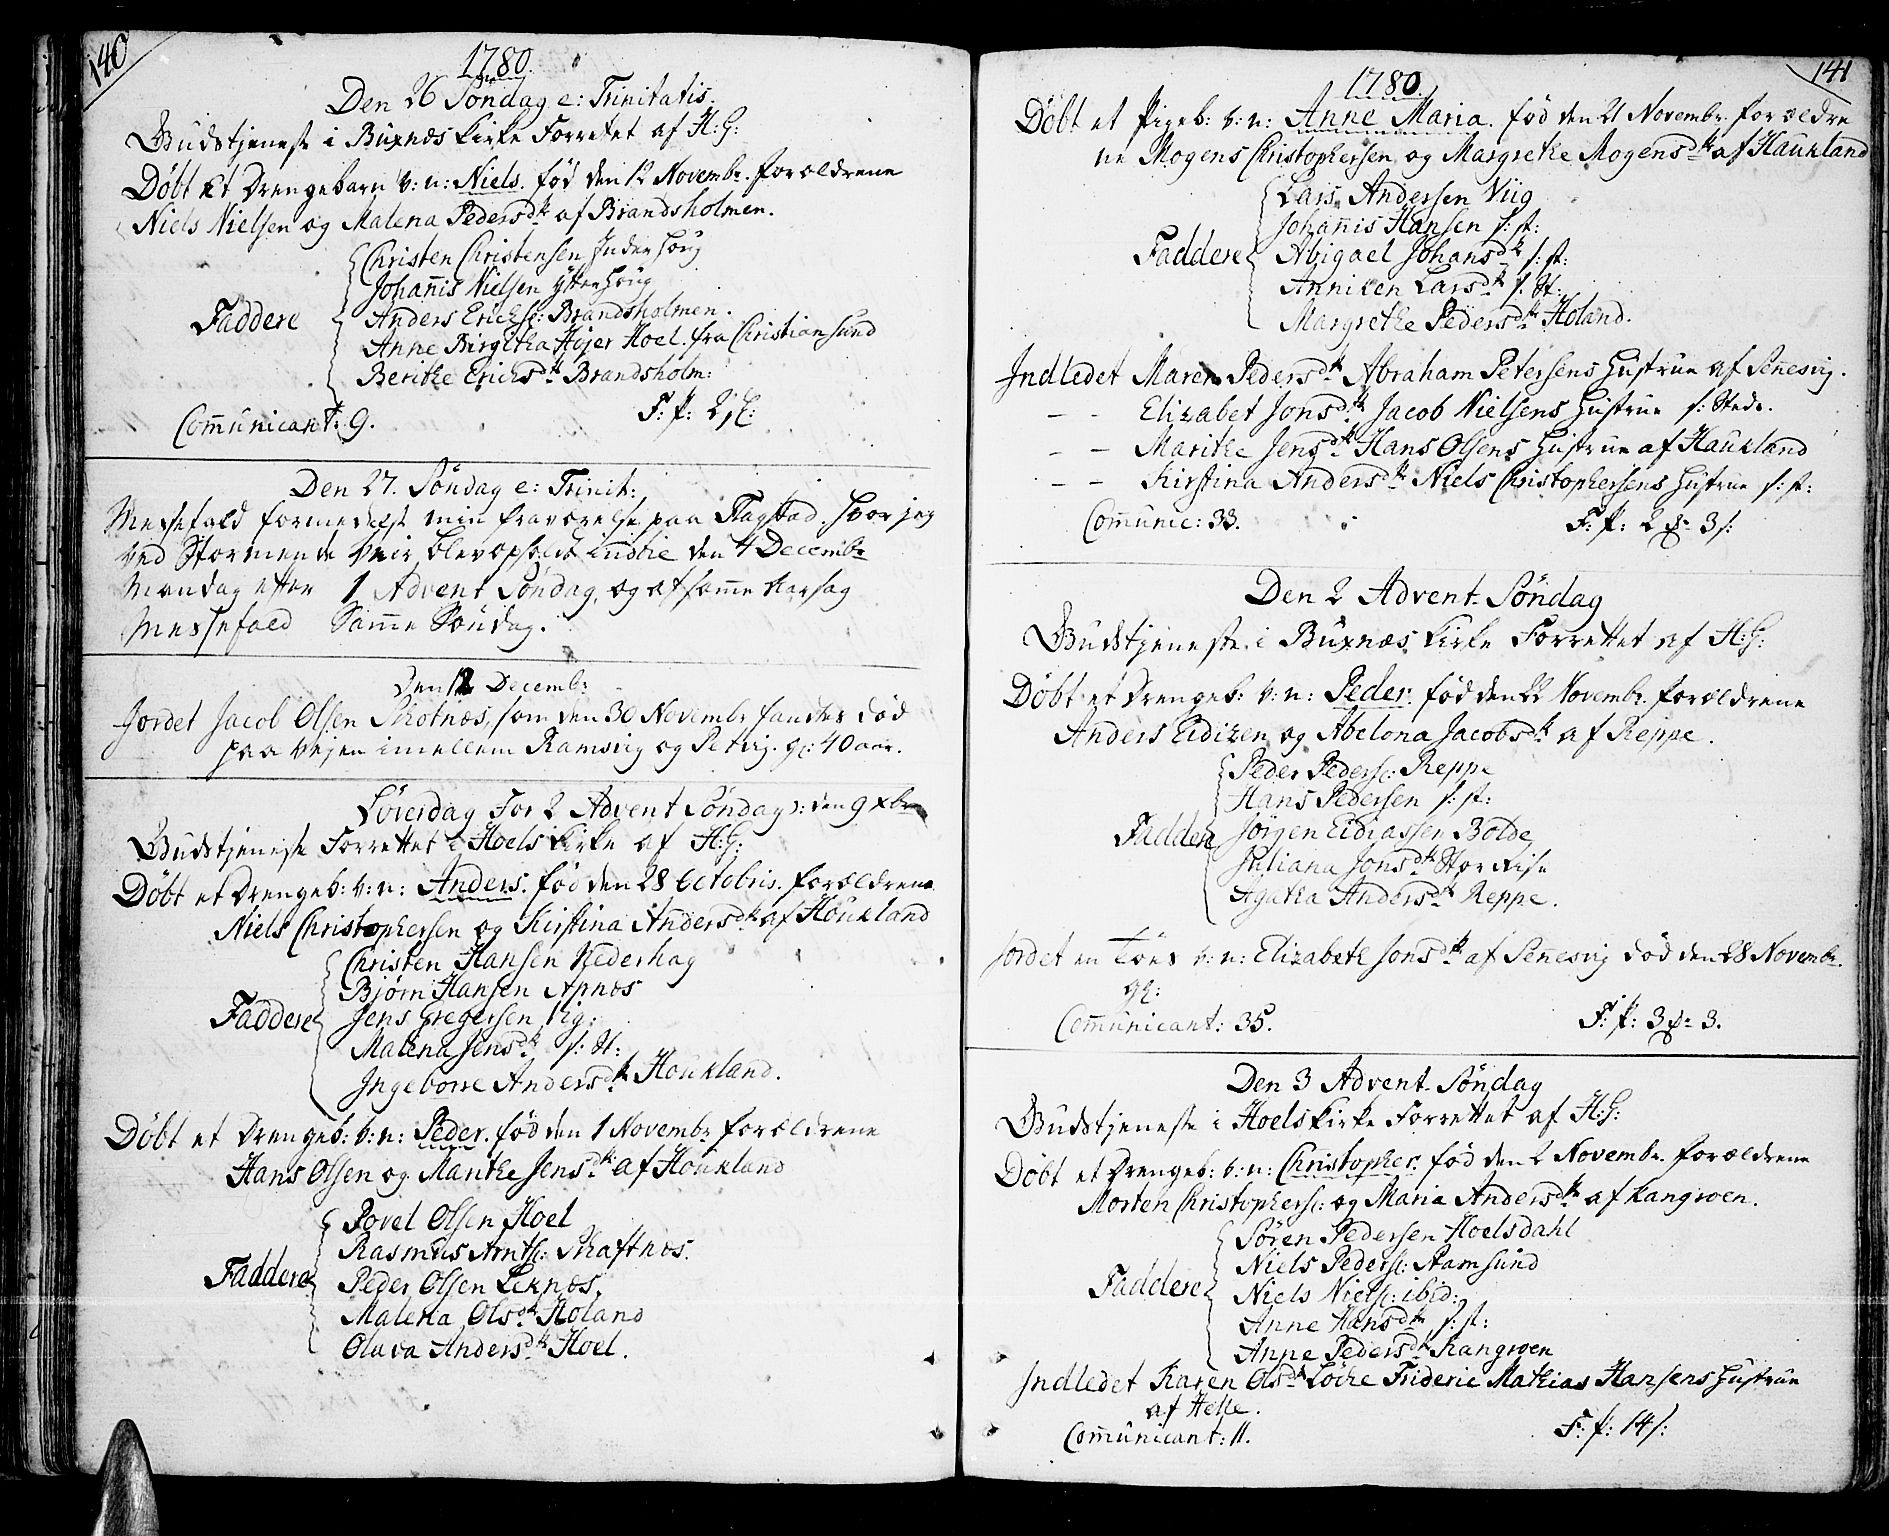 140
1780.
Den 26 Söndag e: Trinitatis.
Gudstjeneste i Buxnæs Kirke Forrettet af H:G:
Döbt Et Drengebarn v: n: Niels. föd den 12 Novembr. forældrene
Niels Nielsen og Malena Pedersdtr af Brandsholmen.
Christen Christensen Inderhoug
Johannis Nielsen Ytterhoug
Faddere Anders Erichs: Brandsholmen.
Anne Birgitha Hojer Hoel. fra Christiansund
Berithe Erichsdtr Brandsholm:
Communicant: 9. F: P:
Den 27. Söndag e: Trinit:
Messefald formedelst min fraværelse paa Flagstad, hvor jeg
ved Stormende Veir blev opholdt indtil den 4 Decembr
Mandag efter 1 Advent Söndag, og af samme Aarsag
Messefald Samme Söndag.
Den 12 Decemb:
Jordet Jacob Olsen Skotnæs, som den 30 Novembr fandtes död
paa Vejen imellem Ramsvig og Petvig. gl: 40 aar.
Löverdag For 2 Advent Söndag: den 9 xbr
Gudstjeneste Forrettet i Hoels Kirke af H:G:
Döbt et Drengeb: v: n: Anders. föd den 28 Octobris. forældrene
Niels Christophersen og Kirstina Andersdtr af Houkland
Christen Hansen Nederhag
Bjørn Hansen Apnæs
Faddere Jens Gregersen Vig:
Malena Jensdtr s: st:
Ingeborre Andersdtr Houkland.
Döbt et Drengeb: v: n: Peder. föd den 1 Novembr forældrene
Hans Olsen og Marithe Jensdtr af Houkland
Povel Olsen Hoel
Rasmus Arnts: Skaftnæs.
Faddere Peder Olsen Leknæs,
Malena Olsdtr Holand
Olava Andersdtr Hoel.
141
1780.
Döbt et Pigeb: v: n: Anne Maria. föd den 21 Novembr. forældre
ne Mogens Christophersen og Margrethe Mogensdtr af Haukland
Lars Andersen Viig
Johannis Hansen s: st:
Faddere Abigael Johansdtr s: st:
Anniken Larsdtr s: st:
Margrethe Pedersdtr Holand.
Indledet Maren Pedersdtr Abraham Petersens Hustrue af Senesvig.
– – Elizabet Jonsdtr Jacob Nielsens Hustrue s: Stede.
– – Marithe Jensdtr Hans Olsens Hustrue af Haukland
– – Kirstina Andersdtr Niels Christophersens Hustrue s: st:
Communic: 33. F: P: 2 - 3 s:
Den 2 Advent Söndag
Gudstjeneste i Buxnæs Kirke Forrettet af H:G:
Döbt et Drengeb: v: n: Peder. föd den 22 Novembr. forældrene
Anders Eidizen og Abelona Jacobsdtr af Reppe.
Peder Peders: Reppe
Hans Pedersen s: st:
Faddere Jörgen Eidiassen Bolde
Juliana Jonsdtr Stor
Agatha Andersdtr Reppe.
Jordet en Töes v: n: Elizabeth Jonsdtr af Senesvig död den 28 Novembr.
gl:
Communicant: 35. F: P: 3 - 3.
Den 3 Advent Söndag
Gudstjeneste i Hoels Kirke Forrettet af H:G:
Döbt et Drengeb: v: n: Christopher. föd den 2 Novembr. forældrene
Morten Christophers: og Maria Andersdtr af Kangroen.
Sören Pedersen Hoelsdahl
Niels Peders: Stamsund
Faddere Niels Niels: ibid:
Anne Hansdtr s: st:
Anne Pedersdtr Kangroen
Indledet Karen Olsdtr Löcke Frideric Mathias Hansens Hustrue
af Helle.
Communicant: 11. F: P: 14 s: